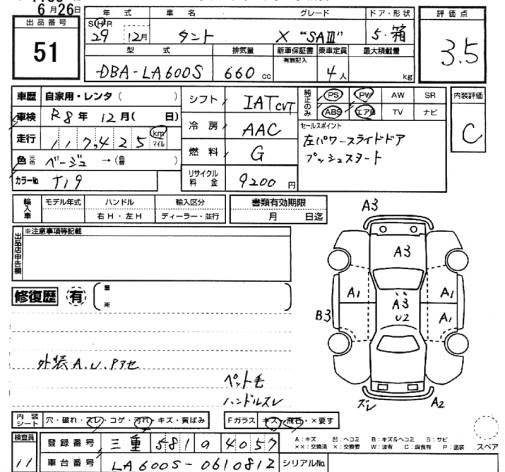 6月26日
出品番号
51
年式 車名 グレード ドア・形状
S H R
29 12月 タント X "SAIII" 5・箱
評価点
3.5
型式 排気量 新車保証書 乗車定員 最大積載量
有無記入
DBA-LA600S 660 cc 4人 kg
車歴 自家用・レンタ( )
車検 R8年12月( 日)
走行 117,425 km マイル
色 元色 ベージュ →(色 )
カラーNo. T19
シフト IAT CVT
冷房 AAC
燃料 G
リサイクル料金 9200円
純正のみ PS PW AW SR
ABS エアB TV ナビ
内装評価
C
セールスポイント
左パワースライドドア
プッシュスタート
輸入車 モデル年式 ハンドル 輸入区分 書類有効期限
右H・左H ディーラー・並行 月 日迄
出品店申告欄
※注意事項等記載
修復歴 有
箇所
A3
A3
A1 A3 A1
U2
B3 A1
ズレ A2
外装A.U.Pアセ
ペット毛
ハンドルスレ
内装シート 穴・破れ・スレ・コゲ・汚れ・キズ・黄ばみ
Fガラス キズ・飛石・×要す
スペア
検査員
11
登録番号 三重 581 a 4057
車台番号 LA600S-0610812 シリアルNo.
A:キズ U:ヘコミ B:キズ&ヘコミ S:サビ
××:交換済 ×:要交換 W:波有 C:腐食有 P:塗装